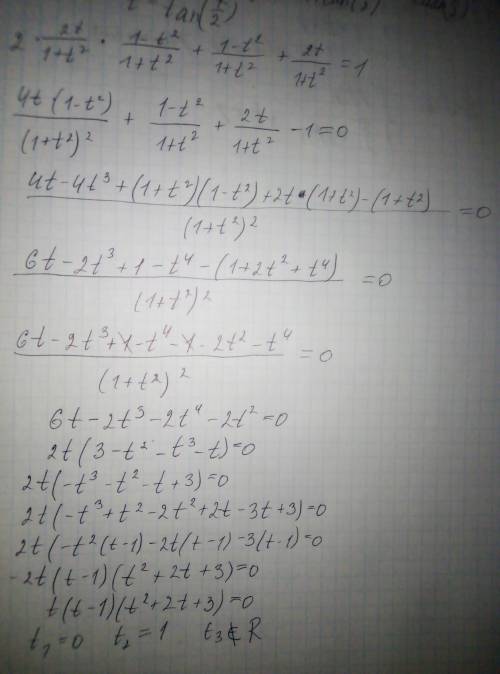 t = tan(x/2)
2 · 2t/(1+t²) · (1-t²)/(1+t²) + (1-t²)/(1+t²) + 2t/(1+t²) = 1
4t(1-t²)/(1+t²)² + (1-t²)/(1+t²) + 2t/(1+t²) - 1 = 0
(4t-4t³+(1+t²)(1-t²)+2t·(1+t²)-(1+t²))/(1+t²)² = 0
(6t-2t³+1-t⁴-(1+2t²+t⁴))/(1+t²)² = 0
(6t-2t³+1-t⁴-1-2t²-t⁴)/(1+t²)² = 0
6t-2t³-2t⁴-2t²=0
2t(3-t²-t³-t)=0
2t(-t³-t²-t+3)=0
2t(-t³+t²-2t²+2t-3t+3)=0
2t(-t²(t-1)-2t(t-1)-3(t-1)=0
-2t(t-1)(t²+2t+3)=0
t(t-1)(t²+2t+3)=0
t₁=0 t₂=1 t₃∉R